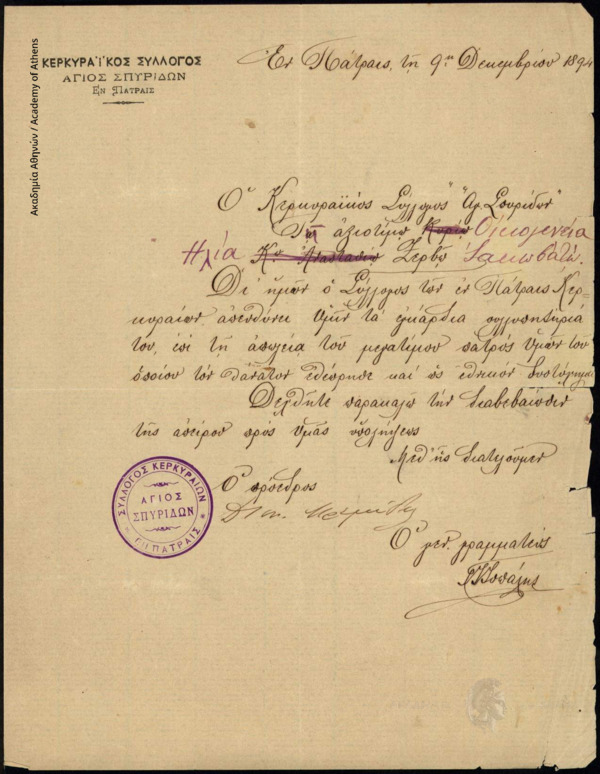 ΚΕΡΚΥΡΑΪΚΟΣ ΣΥΛΛΟΓΟΣ
ΑΓΙΟΣ ΣΠΥΡΙΔΩΝ
ΕΝ ΠΑΤΡΑΙΣ
Ακαδημία Αθηνών / Academy of Athens
Ἐν Πάτραις, τῇ 9ῃ Δεκεμβρίου 1894
Ὁ Κερκυραϊκὸς Σύλλογος "Ἁγ. Σπυρίδων"
Τῇ ἀξιοτίμῳ Κυρίῳ Οἰκογενείᾳ
Ἠλία Κῳ Ἀναστασίῳ Ζερβῷ Ἰακωβάτῳ.
Δι' ἡμῶν ὁ Σύλλογος τῶν ἐν Πάτραις Κερ-
κυραίων ἀπευθύνει Ὑμῖν τὰ ἐγκάρδια συλλυπητήριά
του, ἐπὶ τῇ ἀπωλείᾳ τοῦ μεγατίμου πατρός Ὑμῶν τοῦ
ὁποίου τὸν θάνατον ἐθεώρησε καὶ ὡς ἐθνικὸν δυστύχημα
Δεχθῆτε παρακαλῶ τὴν διαβεβαίωσιν
τῆς ἀπείρου πρὸς Ὑμᾶς ὑπολήψεως
Μεθ' ἧς διατελοῦμεν
Ὁ πρόεδρος
Ὁ γεν. γραμματεὺς
ΣΥΛΛΟΓΟΣ ΚΕΡΚΥΡΑΙΩΝ
ΑΓΙΟΣ
ΣΠΥΡΙΔΩΝ
ΕΝ ΠΑΤΡΑΙΣ